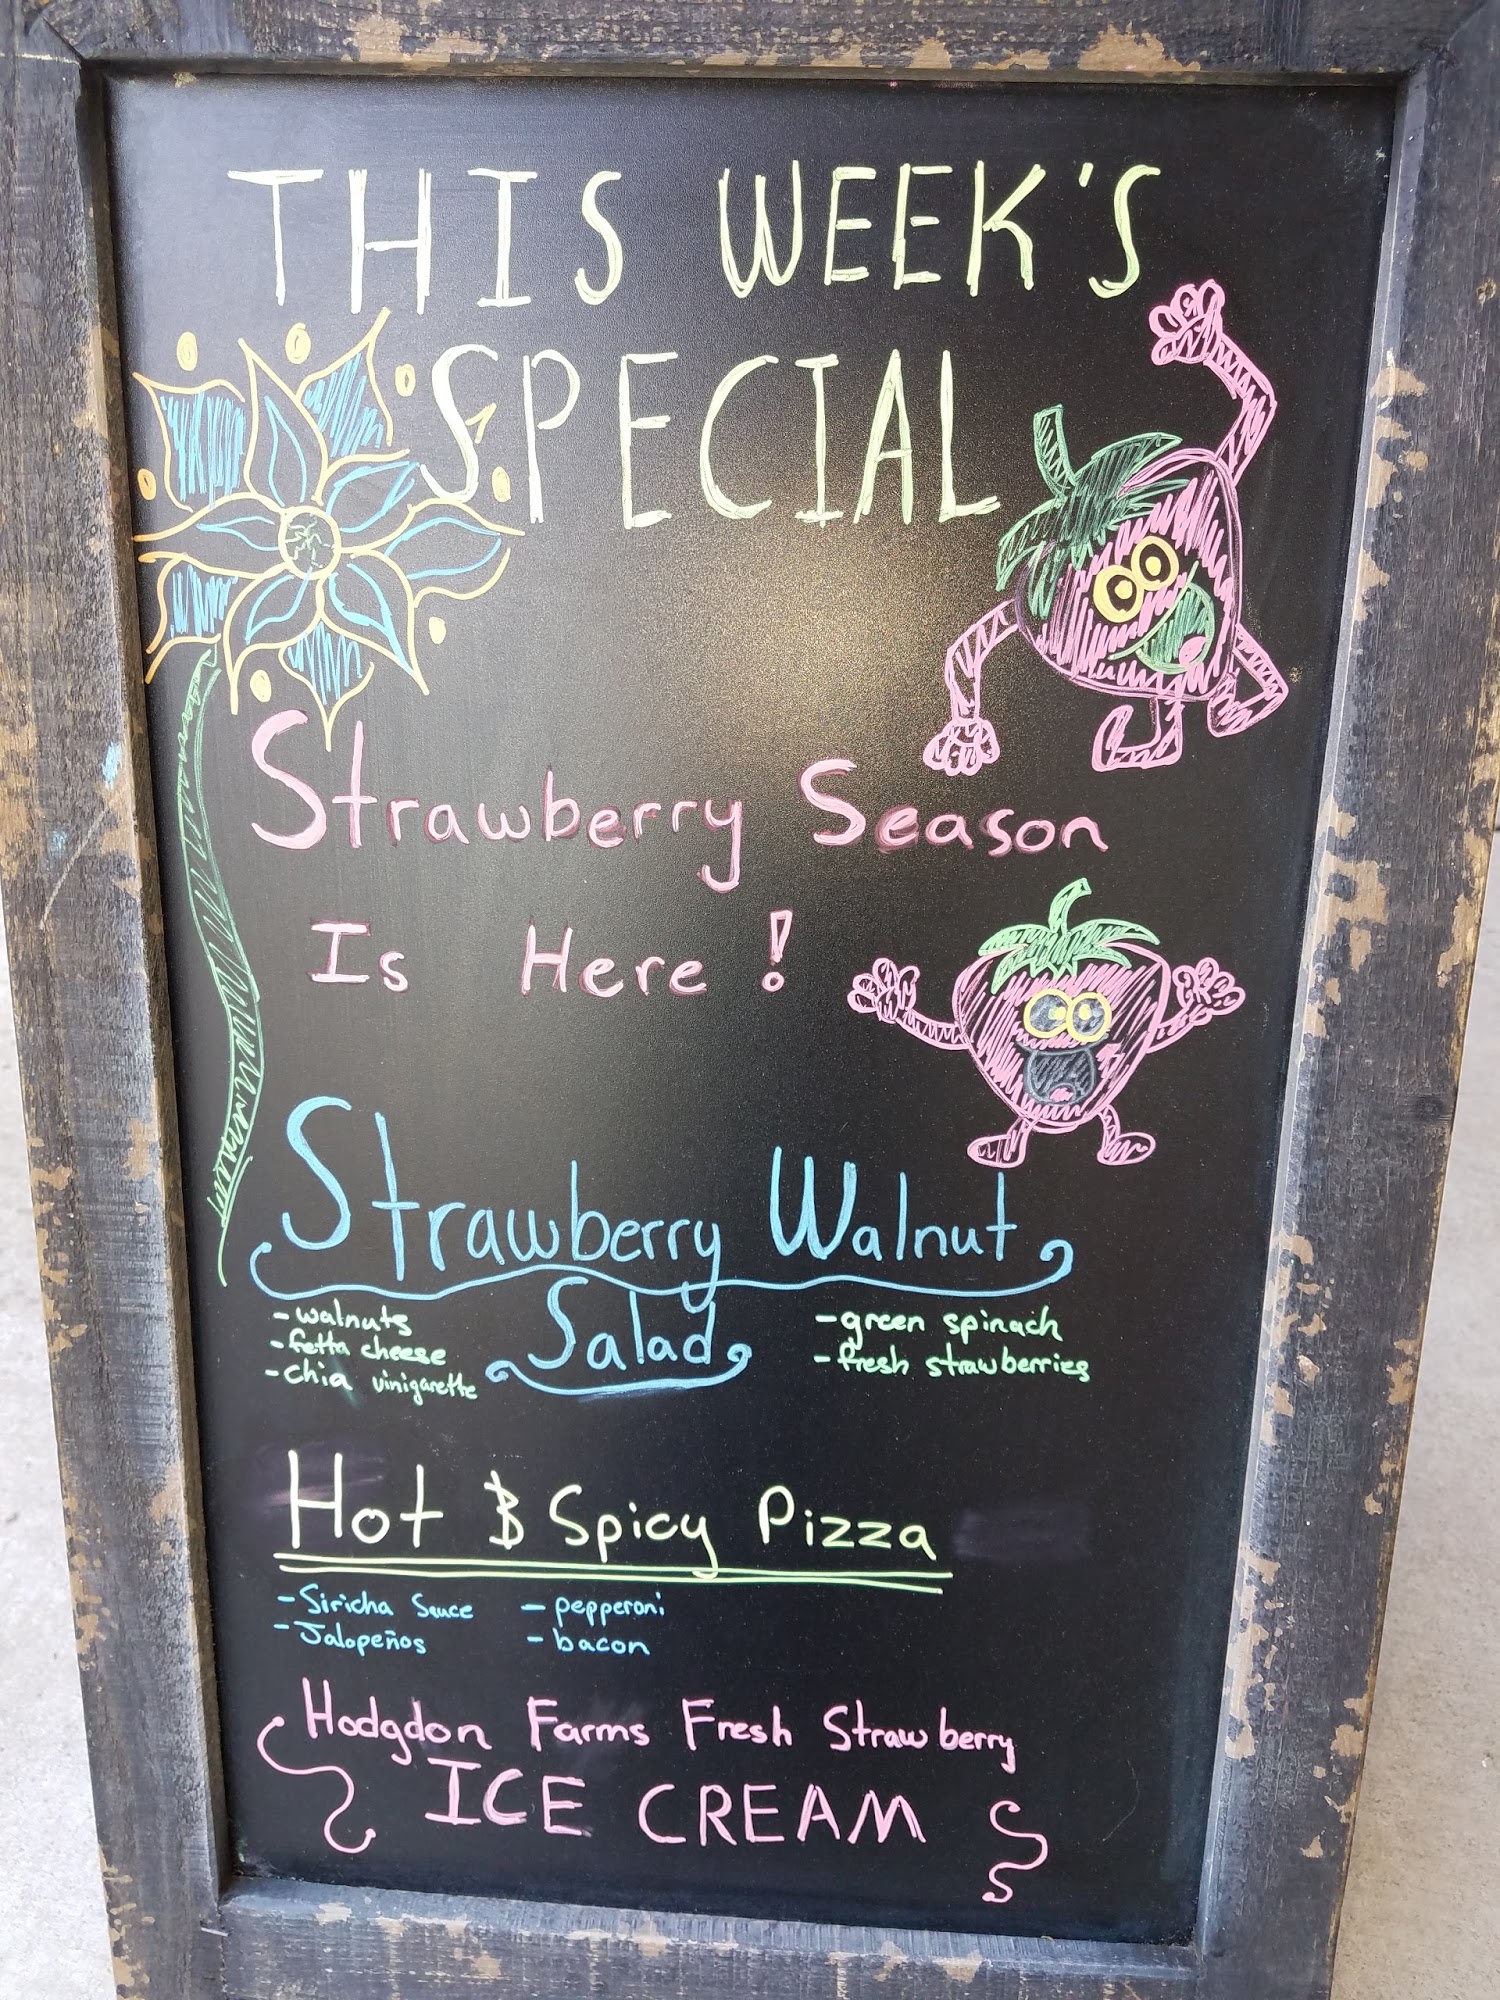 THIS WEEK'S
SPECIAL
Strawberry Season
Is Here!
Strawberry Walnut
Salad
- walnuts
- fetta cheese
- chia vinigarette
- green spinach
- fresh strawberries
Hot & Spicy Pizza
- Siricha Sauce
- Jalopeños
- pepperoni
- bacon
Hodgdon Farms Fresh Strawberry
ICE CREAM